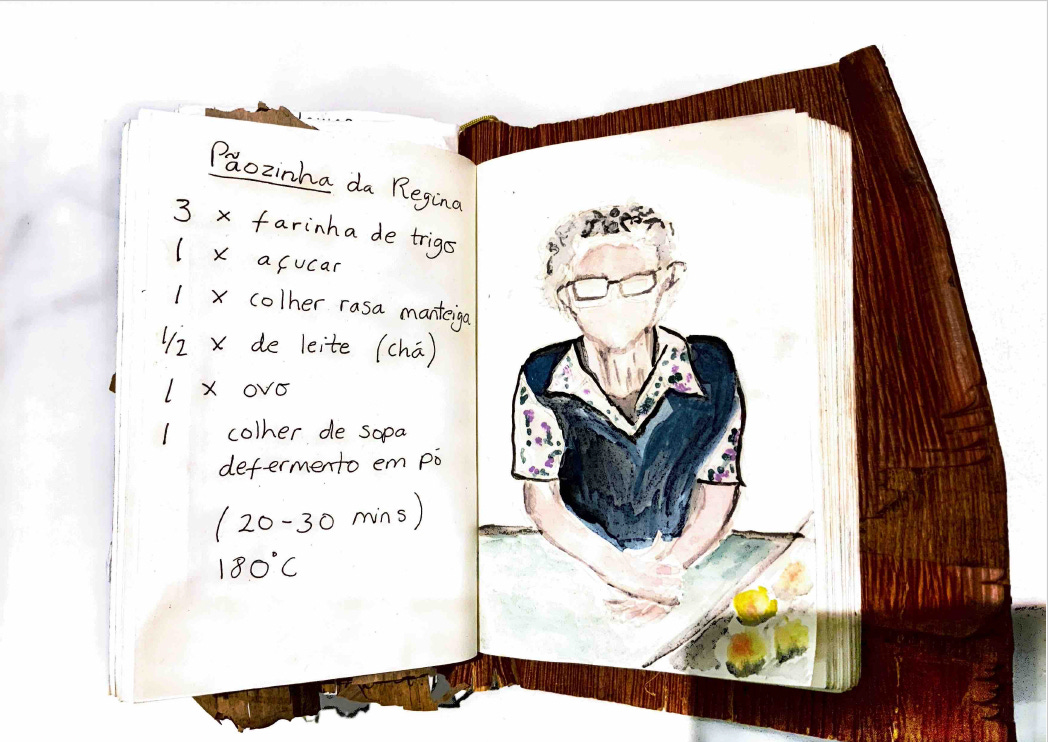 Pãozinha da Regina
3 x farinha de trigo
1 x açucar
1 x colher rasa manteiga
1/2 x de leite (chá)
1 x ovo
1 colher de sopa
defermento em pó
(20-30 mins)
180°C